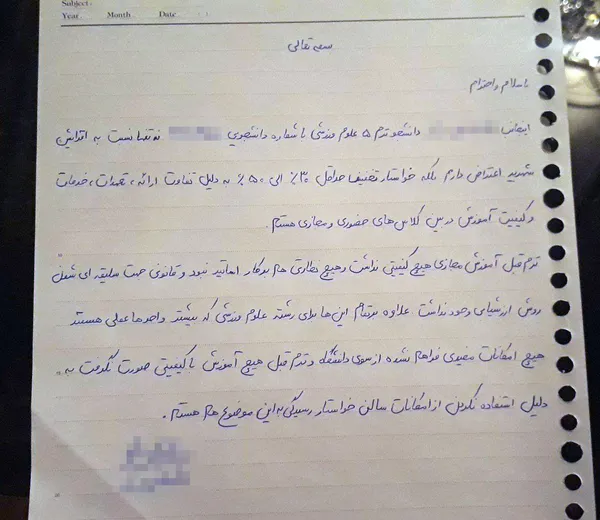 Subject:
Year Month Date
بسمه تعالی
با سلام و احترام
اینجانب دانشجو ترم ۵ علوم ورزشی با شماره دانشجویی نه تنها نسبت به افزایش
شهریه اعتراض دارم بلکه خواستار تخفیف حداقل ۳۰٪ الی ۵۰٪ به دلیل تفاوت ارائه، تعهدات، خدمات
و کیفیت آموزش در بین کلاس‌های حضوری و مجازی هستم.
ترم قبل آموزش مجازی هیچ کیفیتی نداشت و هیچ نظارتی هم بر کار اساتید نبود و قانونی جهت سلیقه ای نشدن
روش ارزشیابی وجود نداشت. علاوه بر تمام این‌ها برای رشته علوم ورزشی که بیشتر واحدها عملی هستند
هیچ امکانات مفیدی فراهم نشده از سوی دانشگاه و ترم قبل هیچ آموزش با کیفیتی صورت نگرفت به
دلیل استفاده نکردن از امکانات سالن خواستار رسیدگی به این موضوع هم هستم.